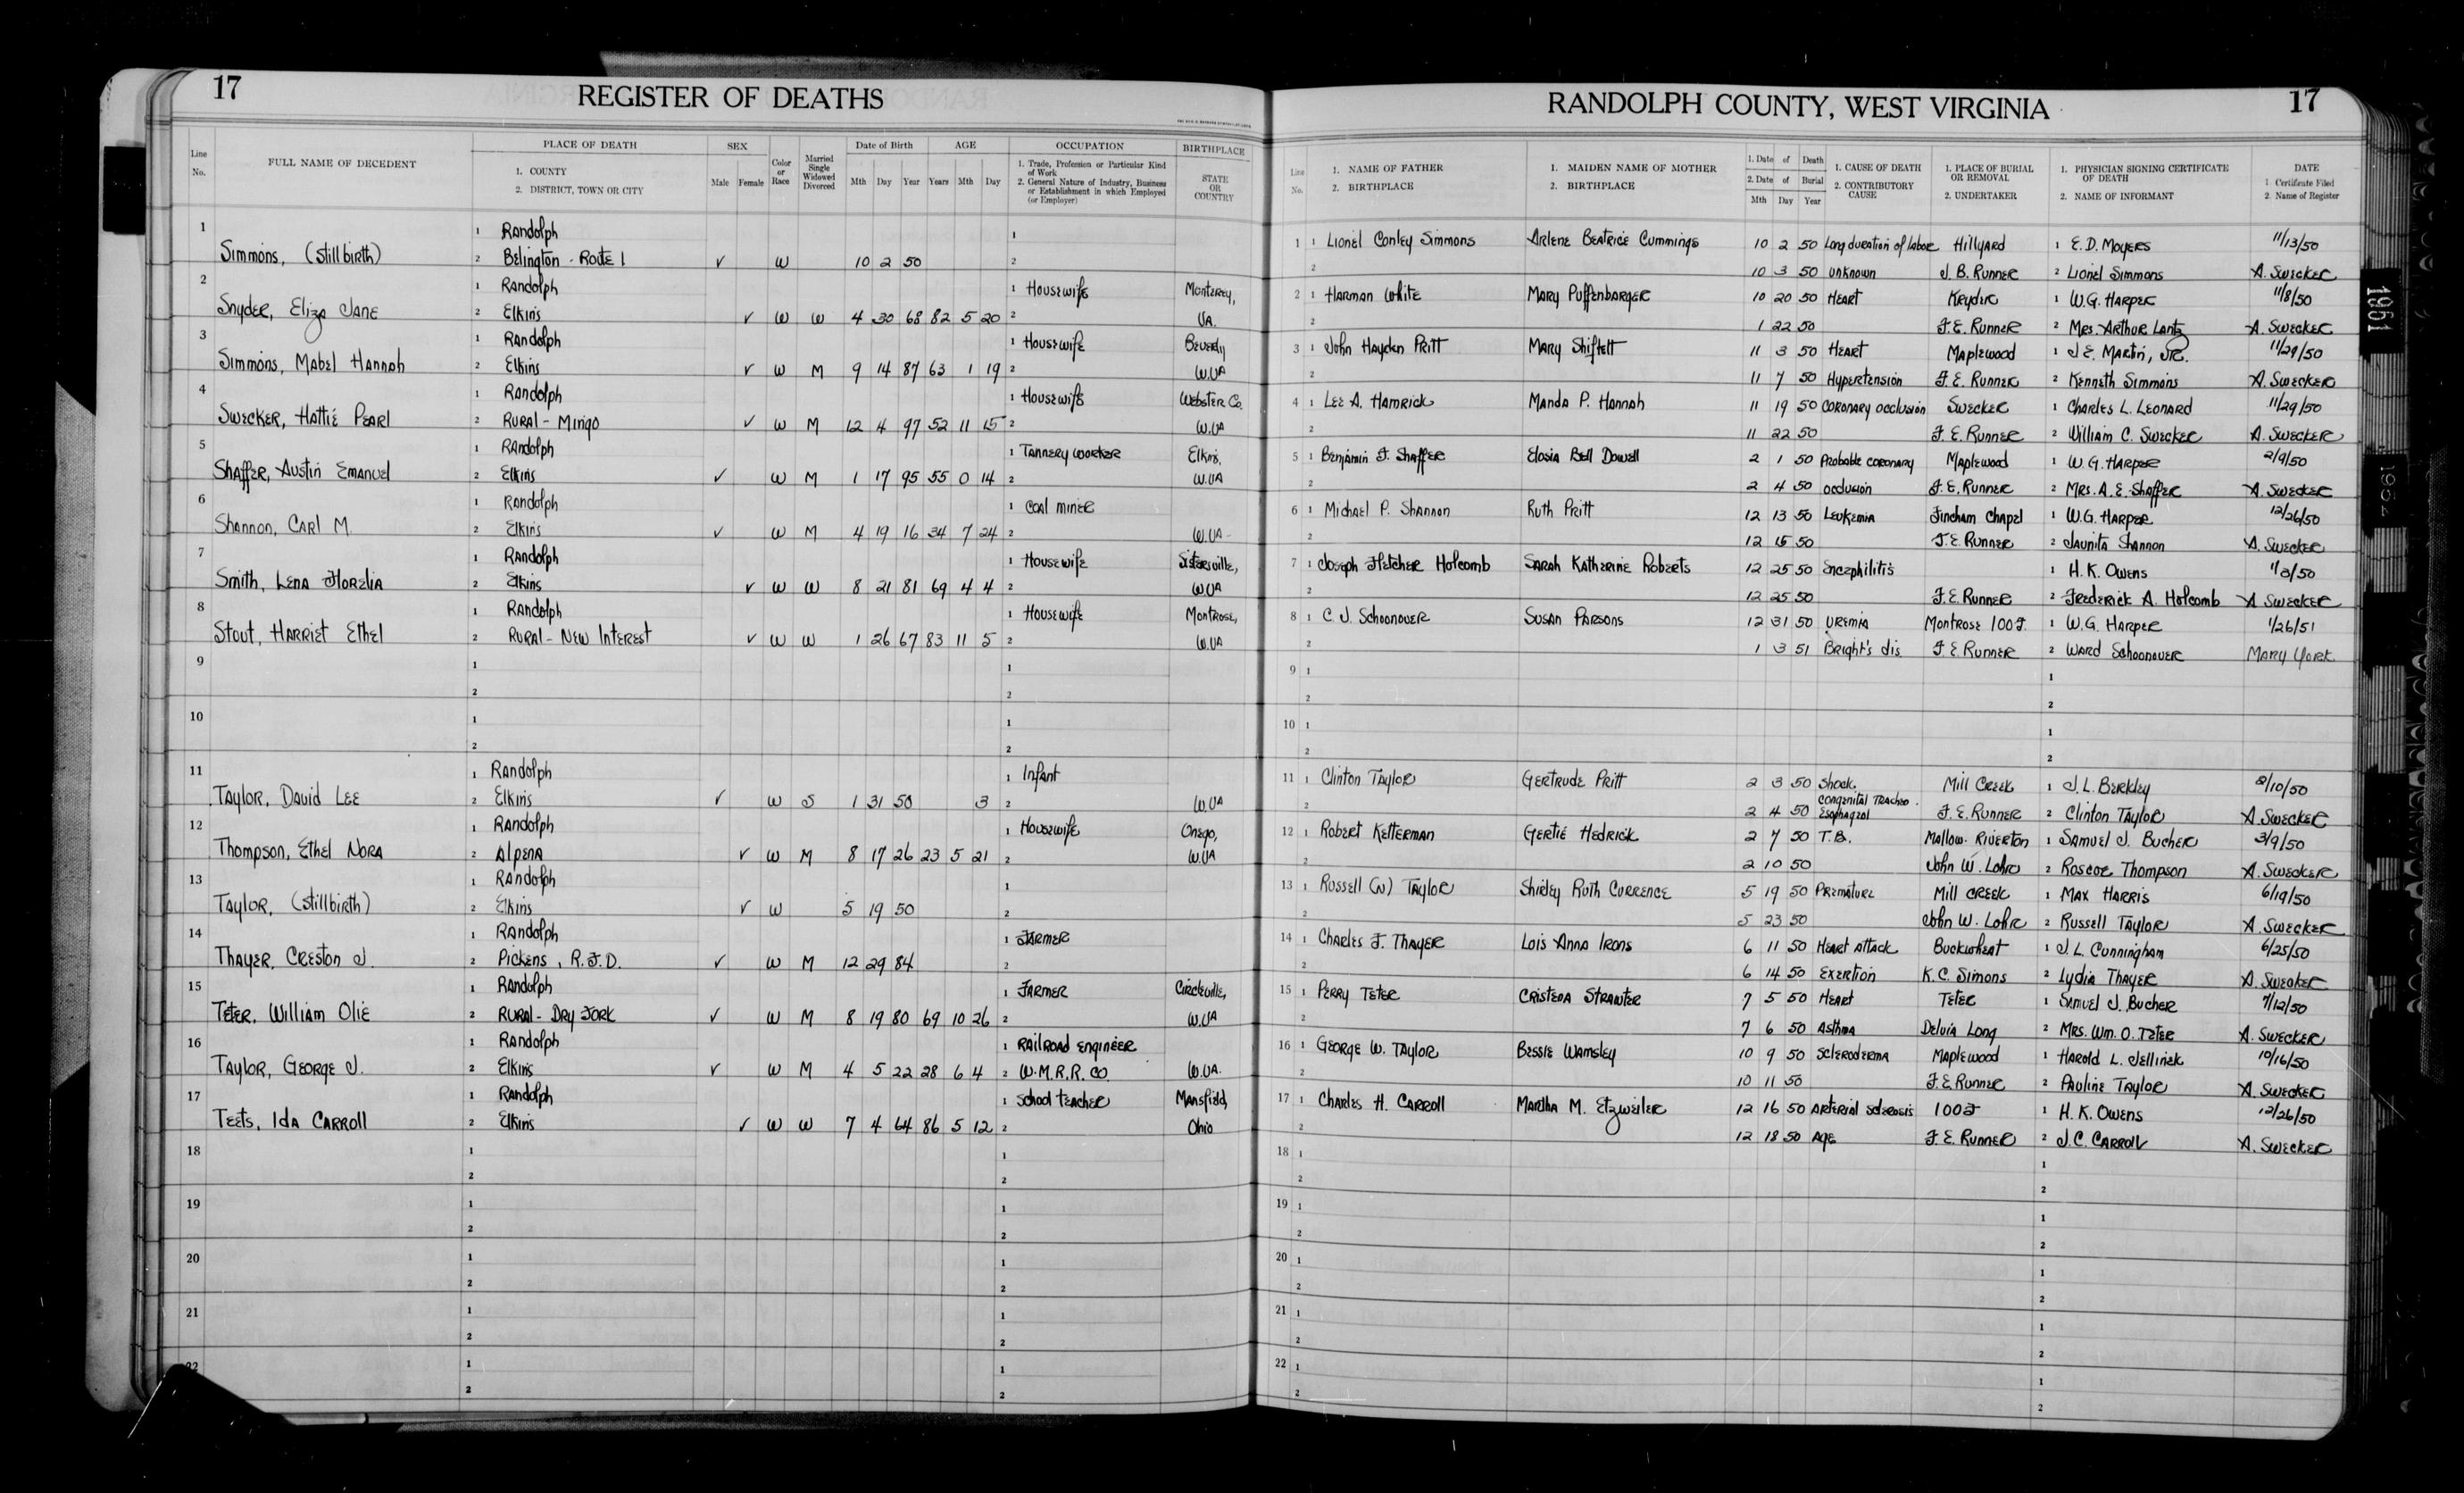 17 REGISTER OF DEATHS
RANDOLPH COUNTY, WEST VIRGINIA 17
Line No. FULL NAME OF DECEDENT PLACE OF DEATH 1. COUNTY 2. DISTRICT, TOWN OR CITY SEX Male Female Color or Race Married Single Widowed Divorced Date of Birth Mth Day Year AGE Years Mth Day OCCUPATION 1. Trade, Profession or Particular Kind of Work 2. General Nature of Industry, Business or Establishment in which Employed (or Employer) BIRTHPLACE STATE OR COUNTRY
Line No. 1. NAME OF FATHER 2. BIRTHPLACE 1. MAIDEN NAME OF MOTHER 2. BIRTHPLACE 1. Date of Death 2. Date of Burial Mth Day Year 1. CAUSE OF DEATH 2. CONTRIBUTORY CAUSE 1. PLACE OF BURIAL OR REMOVAL 2. UNDERTAKER 1. PHYSICIAN SIGNING CERTIFICATE OF DEATH 2. NAME OF INFORMANT DATE 1 Certificate Filed 2. Name of Register
1 1 Randolph 1
Simmons, (stillbirth) 2 Belington - Route 1 ✓ W 10 2 50 2
2 1 Randolph 1 Housewife Monterey,
Snyder, Eliza Jane 2 Elkins ✓ W W 4 30 68 82 5 20 2 VA.
3 1 Randolph 1 Housewife Beverly
Simmons, Mabel Hannah 2 Elkins ✓ W M 9 14 87 63 1 19 2 W.VA
4 1 Randolph 1 Housewife Webster Co.
Swecker, Hattie Pearl 2 Rural - Mingo ✓ W M 12 4 97 52 11 15 2 W.VA
5 1 Randolph 1 Tannery worker Elkins,
Shaffer, Austin Emanuel 2 Elkins ✓ W M 1 17 95 55 0 14 2 W.VA
6 1 Randolph 1 Coal miner
Shannon, Carl M. 2 Elkins ✓ W M 4 19 16 34 7 24 2 W.VA -
7 1 Randolph 1 Housewife Sistersville,
Smith, Lena Florelia 2 Elkins ✓ W W 8 21 81 69 4 4 2 W.VA
8 1 Randolph 1 Housewife Montrose,
Stout, Harriet Ethel 2 Rural - New Interest ✓ W W 1 26 67 83 11 5 2 W.VA
9 1 1
2 2
10 1 1
2 2
11 1 Randolph 1 Infant
Taylor, David Lee 2 Elkins ✓ W S 1 31 50 3 2 W.VA
12 1 Randolph 1 Housewife Onego,
Thompson, Ethel Nora 2 Alpena ✓ W M 8 17 26 23 5 21 2 W.VA
13 1 Randolph 1
Taylor, (stillbirth) 2 Elkins ✓ W 5 19 50 2
14 1 Randolph 1 Farmer
Thayer, Creston J. 2 Pickens, R.F.D. ✓ W M 12 29 84 2
15 1 Randolph 1 Farmer Circleville,
Teter, William Olie 2 Rural - Dry Fork ✓ W M 8 19 80 69 10 26 2 W.VA
16 1 Randolph 1 Railroad engineer
Taylor, George J. 2 Elkins ✓ W M 4 5 22 28 6 4 2 W.M.R.R. Co. W.VA.
17 1 Randolph 1 School teacher Mansfield,
Teets, Ida Carroll 2 Elkins ✓ W W 7 4 64 86 5 12 2 Ohio
18 1 1
2 2
19 1 1
2 2
20 1 1
2 2
21 1 1
2 2
22 1 1
2 2
1 1 Lionel Conley Simmons Arlene Beatrice Cummings 10 2 50 Long duration of labor Hillyard 1 E.D. Moyers 11/13/50
2 10 3 50 unknown J. B. Runner 2 Lionel Simmons A. Swecker
2 1 Harman White Mary Puffenbarger 10 20 50 Heart Kryder 1 W.G. Harper 11/8/50
2 1 22 50 F.E. Runner 2 Mrs. Arthur Lantz A. Swecker
3 1 John Hayden Pritt Mary Shiflett 11 3 50 Heart Maplewood 1 J E. Martin, Jr. 11/29/50
2 11 7 50 Hypertension F. E. Runner 2 Kenneth Simmons A. Swecker
4 1 Lee A. Hamrick Manda P. Hannah 11 19 50 Coronary occlusion Swecker 1 Charles L. Leonard 11/29/50
2 11 22 50 F. E. Runner 2 William C. Swecker A. Swecker
5 1 Benjamin F. Shaffer Elosia Bell Dowell 2 1 50 Probable coronary Maplewood 1 W.G. Harper 2/9/50
2 2 4 50 occlusion F.E. Runner 2 Mrs. A.E. Shaffer A. Swecker
6 1 Michael P. Shannon Ruth Pritt 12 13 50 Leukemia Fincham Chapel 1 W.G. Harper 12/26/50
2 12 15 50 F.E. Runner 2 Jaunita Shannon A. Swecker
7 1 Joseph Fletcher Holcomb Sarah Katherine Roberts 12 25 50 Encephilitis 1 H.K. Owens 1/3/50
2 12 25 50 F.E. Runner 2 Frederick A. Holcomb A Swecker
8 1 C.J. Schoonover Susan Parsons 12 31 50 Uremia Montrose 100F. 1 W.G. Harper 1/26/51
2 1 3 51 Bright's dis. F.E. Runner 2 Ward Schoonover Mary York
9 1 1
2 2
10 1 1
2 2
11 1 Clinton Taylor Gertrude Pritt 2 3 50 Shock. Mill Creek 1 J.L. Berkley 2/10/50
2 2 4 50 Congenital Tracheo Esophageal F. E. Runner 2 Clinton Taylor A. Swecker
12 1 Robert Ketterman Gertie Hedrick 2 7 50 T.B. Mallow-Riverton 1 Samuel J. Bucher 3/9/50
2 2 10 50 John W. Lohr 2 Roscoe Thompson A. Swecker
13 1 Russell (N) Taylor Shirley Ruth Currence 5 19 50 Premature Mill Creek 1 Max Harris 6/19/50
2 5 23 50 John W. Lohr 2 Russell Taylor A. Swecker
14 1 Charles F. Thayer Lois Anna Irons 6 11 50 Heart Attack Buckwheat 1 J.L. Cunningham 6/25/50
2 6 14 50 Exertion K.C. Simons 2 Lydia Thayer A. Swecker
15 1 Perry Teter Cristena Strawter 7 5 50 Heart Teter 1 Samuel J. Bucher 7/12/50
2 7 6 50 Asthma Delvia Long 2 Mrs. Wm. O. Teter A. Swecker
16 1 George W. Taylor Bessie Wamsley 10 9 50 Scleroderma Maplewood 1 Harold L. Jellinek 10/16/50
2 10 11 50 F.E. Runner 2 Pauline Taylor A. Swecker
17 1 Charles H. Carroll Martha M. Etzweiler 12 16 50 Arterial sclerosis 100F 1 H.K. Owens 12/26/50
2 12 18 50 Age F. E. Runner 2 J.C. Carroll A. Swecker
18 1 1
2 2
19 1 1
2 2
20 1 1
2 2
21 1 1
2 2
22 1 1
2 2
1951
1952